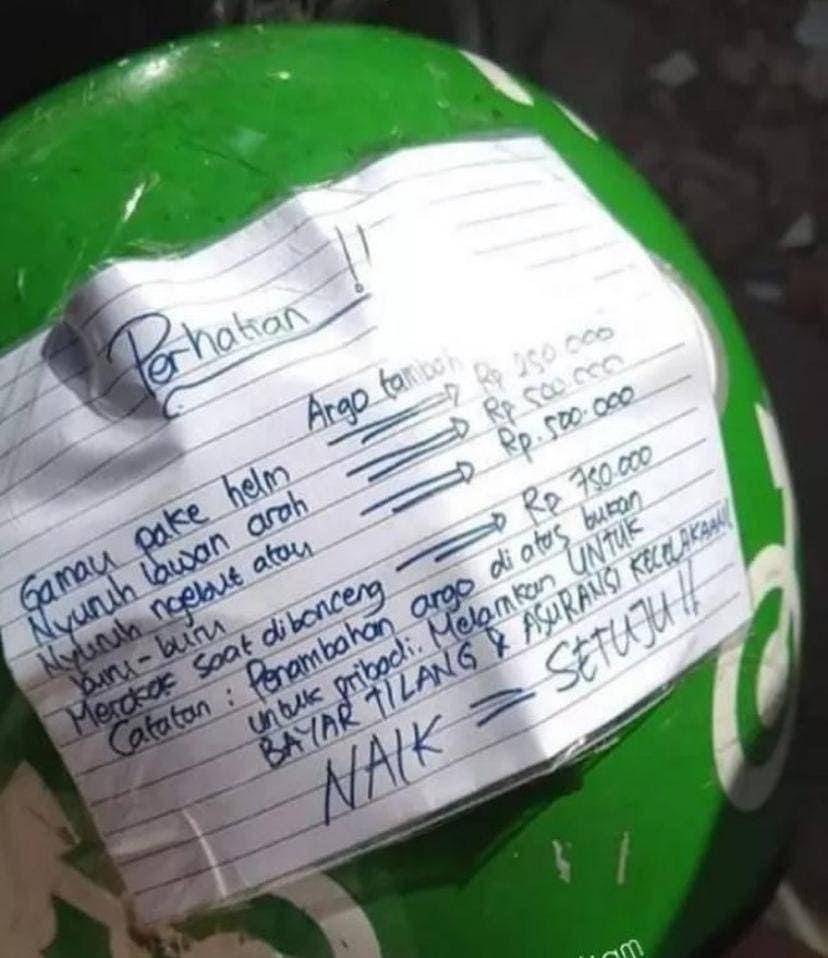 Perhatian !!
Argo tambah
Gamau pake helm ⇒ Rp 250.000
Nyuruh lawan arah ⇒ Rp 500.000
Nyuruh ngebut atau ⇒ Rp. 500.000
buru-buru
Merokok saat dibonceng ⇒ Rp 750.000
Catatan : Penambahan argo di atas bukan
untuk pribadi. Melainkan UNTUK
BAYAR TILANG & ASURANSI KECELAKAAN!
NAIK = SETUJU!!